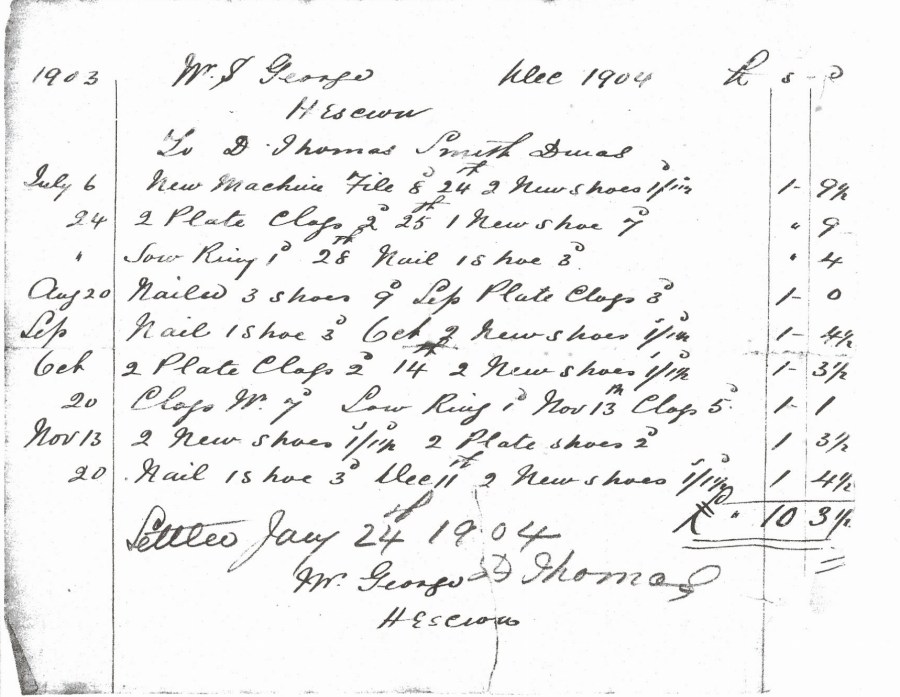 1903 Mr J George Dec 1904 £ s d
H Escwn
To D. Thomas Smith Dinas
July 6 New Machine File 8d 24th 2 New shoes 1s/1½d 1- 9½
24 2 Plate Clogs 2d 25th 1 New shoe 7d " 9
" Sow Ring 1d 28th Nail 1 shoe 3d " 4
Aug 20 Nailed 3 shoes 9d Sep Plate Clogs 3d 1- 0
Sep Nail 1 shoe 3d Oct 2 New shoes 1s/1½d 1- 4½
Oct 2 Plate Clogs 2d 14th 2 New shoes 1s/1½d 1- 3½
20 Clogs W. 7d Sow Ring 1d Nov 13th Clogs 5d 1- 1
Nov 13 2 New shoes 1s/1½ 2 Plate shoes 2d 1 3½
20 Nail 1 shoe 3d Dec 11th 2 New shoes 1s/1½d 1 4½
£ " 10 3½
Settled Jany 24th 1904
Mr. George D Thomas
H Escwn